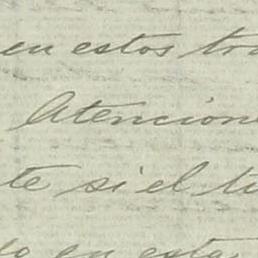 en estos tra
Atencione
te si el ti
do en estas